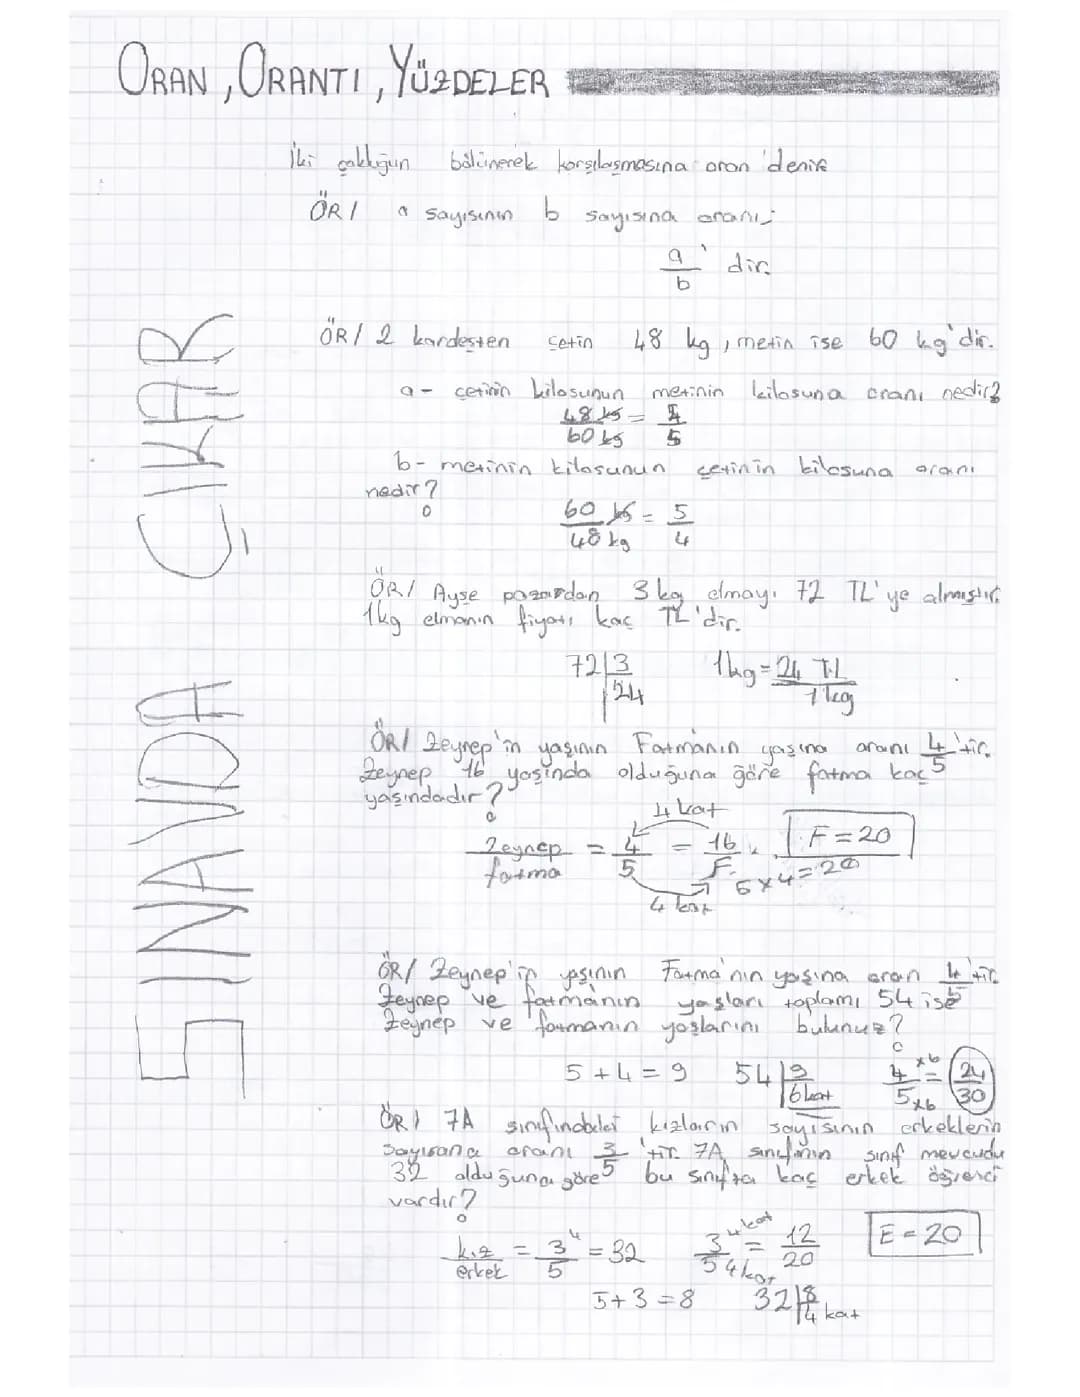 ORAN, ORANTI, YÜZDELER
İki çokluğun bölünerek karşılaşmasına oran 'denir
ÖR/ a sayısının b sayısına oranı;
a/b ' dir.
ÖR/ 2 kardeşten çetin 48 kg, metin ise 60 kg'dir.
a- çetinin kilosunun metinin kilosuna oranı nedir?
48 kg / 60 kg = 4/5
b- metinin kilosunun çetinin kilosuna oranı
nedir?
60 kg / 48 kg = 5/4
ÖR/ Ayşe pazardan 3 kg elmayı 72 TL'ye almıştır.
1kg elmanın fiyatı kaç TL'dir.
72 | 3 1kg = 24 TL / 1 kg
24
ÖR/ Zeynep'in yaşının Fatmanın yaşına oranı 4/5'tir.
Zeynep 16 yaşında olduğuna göre fatma kaç
yaşındadır?
4 kat
Zeynep / fatma = 4/5 = 16/F F = 20
5x4=20
4 kat
ÖR/ Zeynep'in yaşının Fatma'nın yaşına oran 4/5'tir.
Zeynep ve fatmanın yaşları toplamı 54 ise
Zeynep ve fatmanın yaşlarını bulunuz?
5+4=9 54 | 9 4/5 x6 x6 = 24/30
6 kat
ÖR/ 7A sınıfındaki kızların sayısının erkeklerin
sayısana oranı 3/5 'tir. 7A sınıfının sınıf mevcudu
32 olduğuna göre bu sınıfta kaç erkek öğrenci
vardır?
kız / erkek = 3/5 4 = 32 3/5 4 kat 4 kat = 12/20 E = 20
5+3=8 32 | 8 4 kat
SINAVDA ÇIKAR